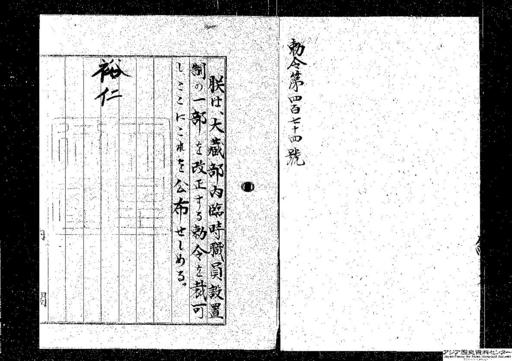 勅令第四百七十四號
朕は、大藏部內臨時職員設置
制の一部を改正する勅令を裁可
し、ここにこれを公布せしめる。
裕仁
アジア歴史資料センター